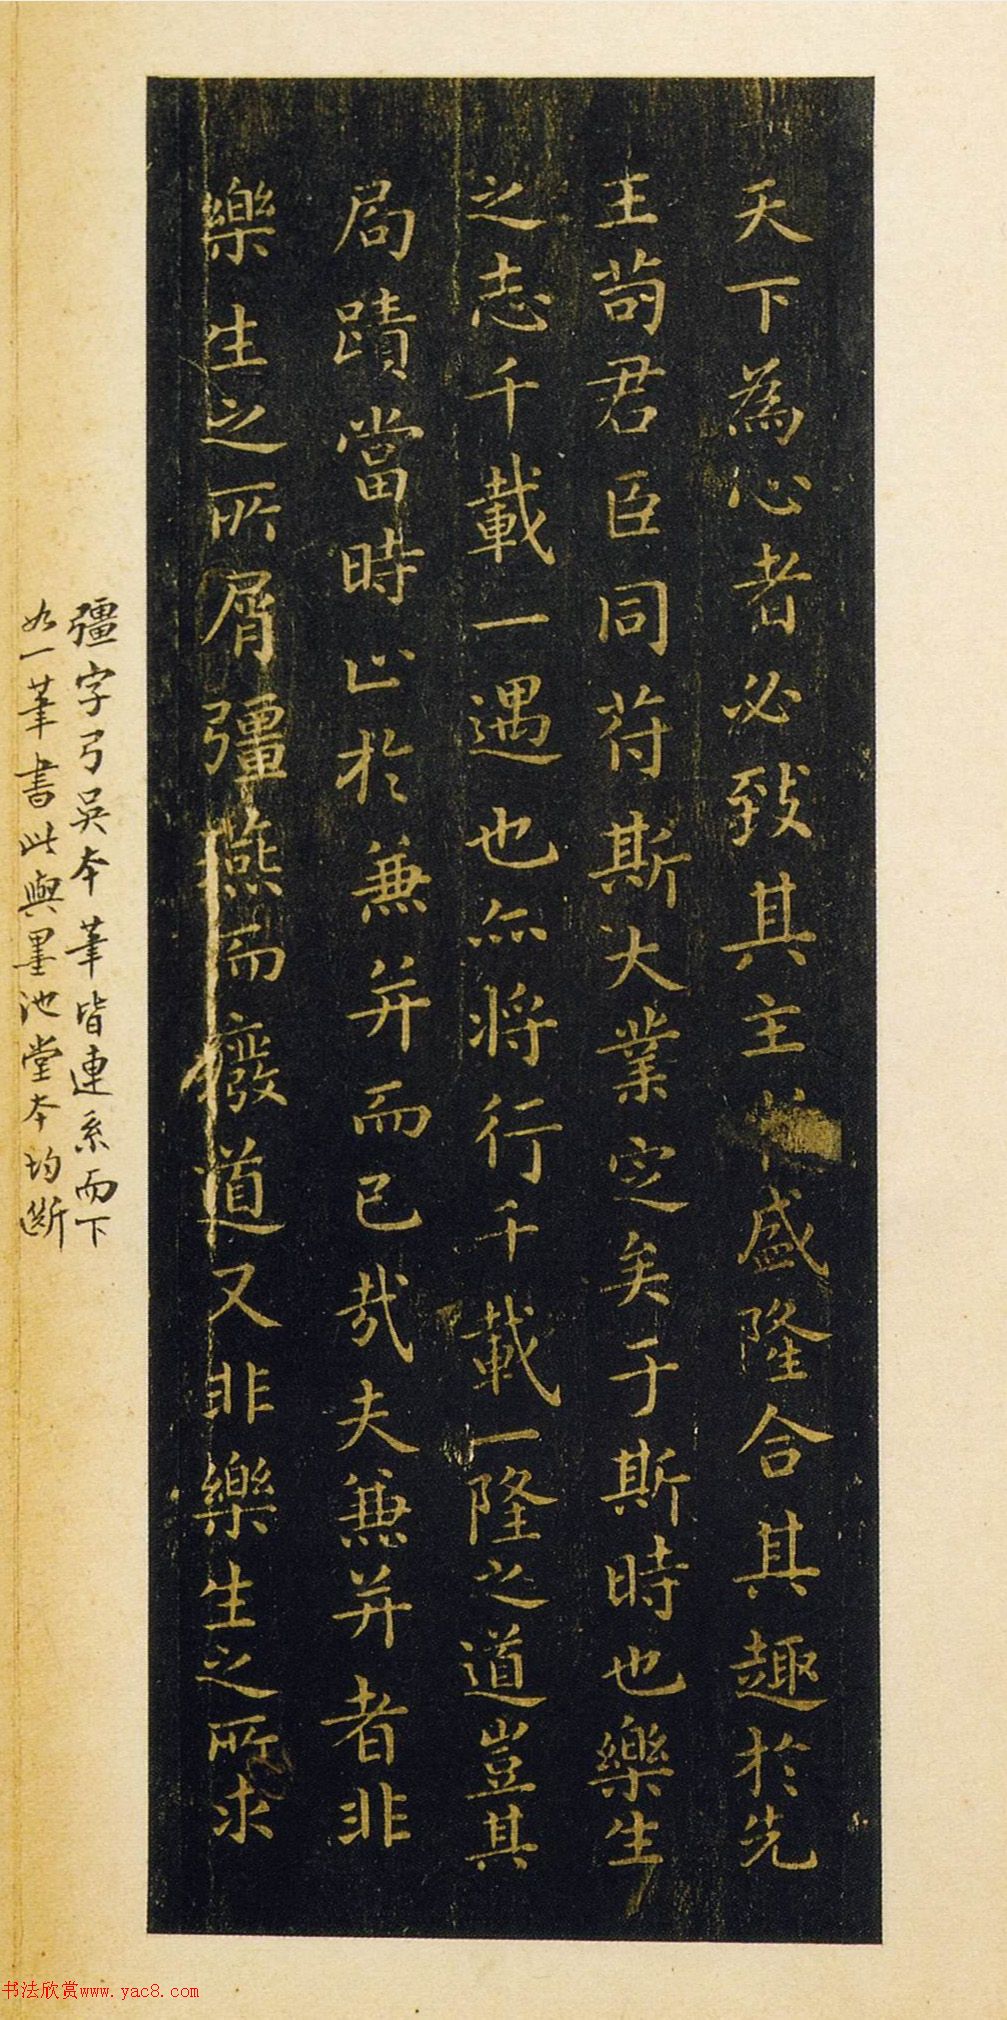 天下為心者必致其主於盛隆合其趣於先
王苟君臣同苻斯大業㝎矣于斯時也樂生
之志千載一遇也亦將行千載一隆之道豈其
局蹟當時止於兼并而已哉夫兼并者非
樂生之所屑彊燕而廢道又非樂生之所求
彊字弓吳本筆皆連系而下
如一筆書此與墨池堂本均斷
书法欣赏www.yac8.com